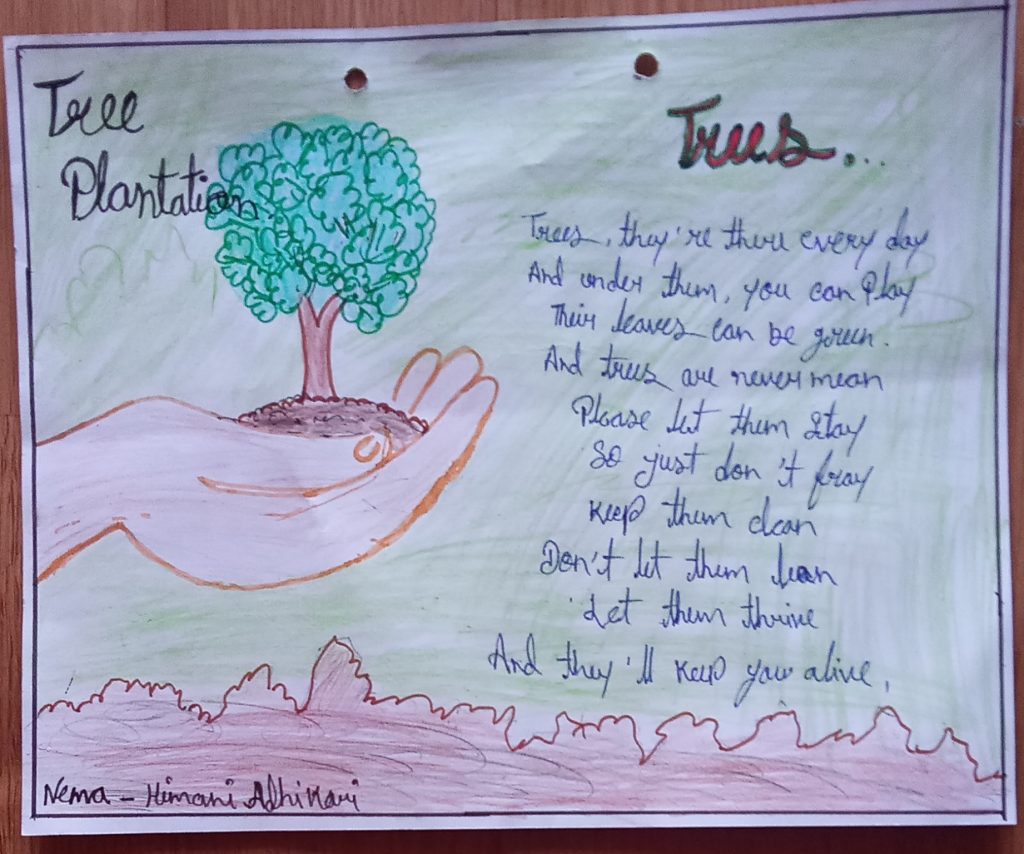 Tree
Plantation
Trees...
Trees, they're there every day
And under them, you can Play
Their leaves can be green.
And trees are never mean
Please let them Stay
So just don't fray
Keep them clean
Don't let them lean
Let them thrive
And they'll keep you alive,
Nema - Himani Adhikari